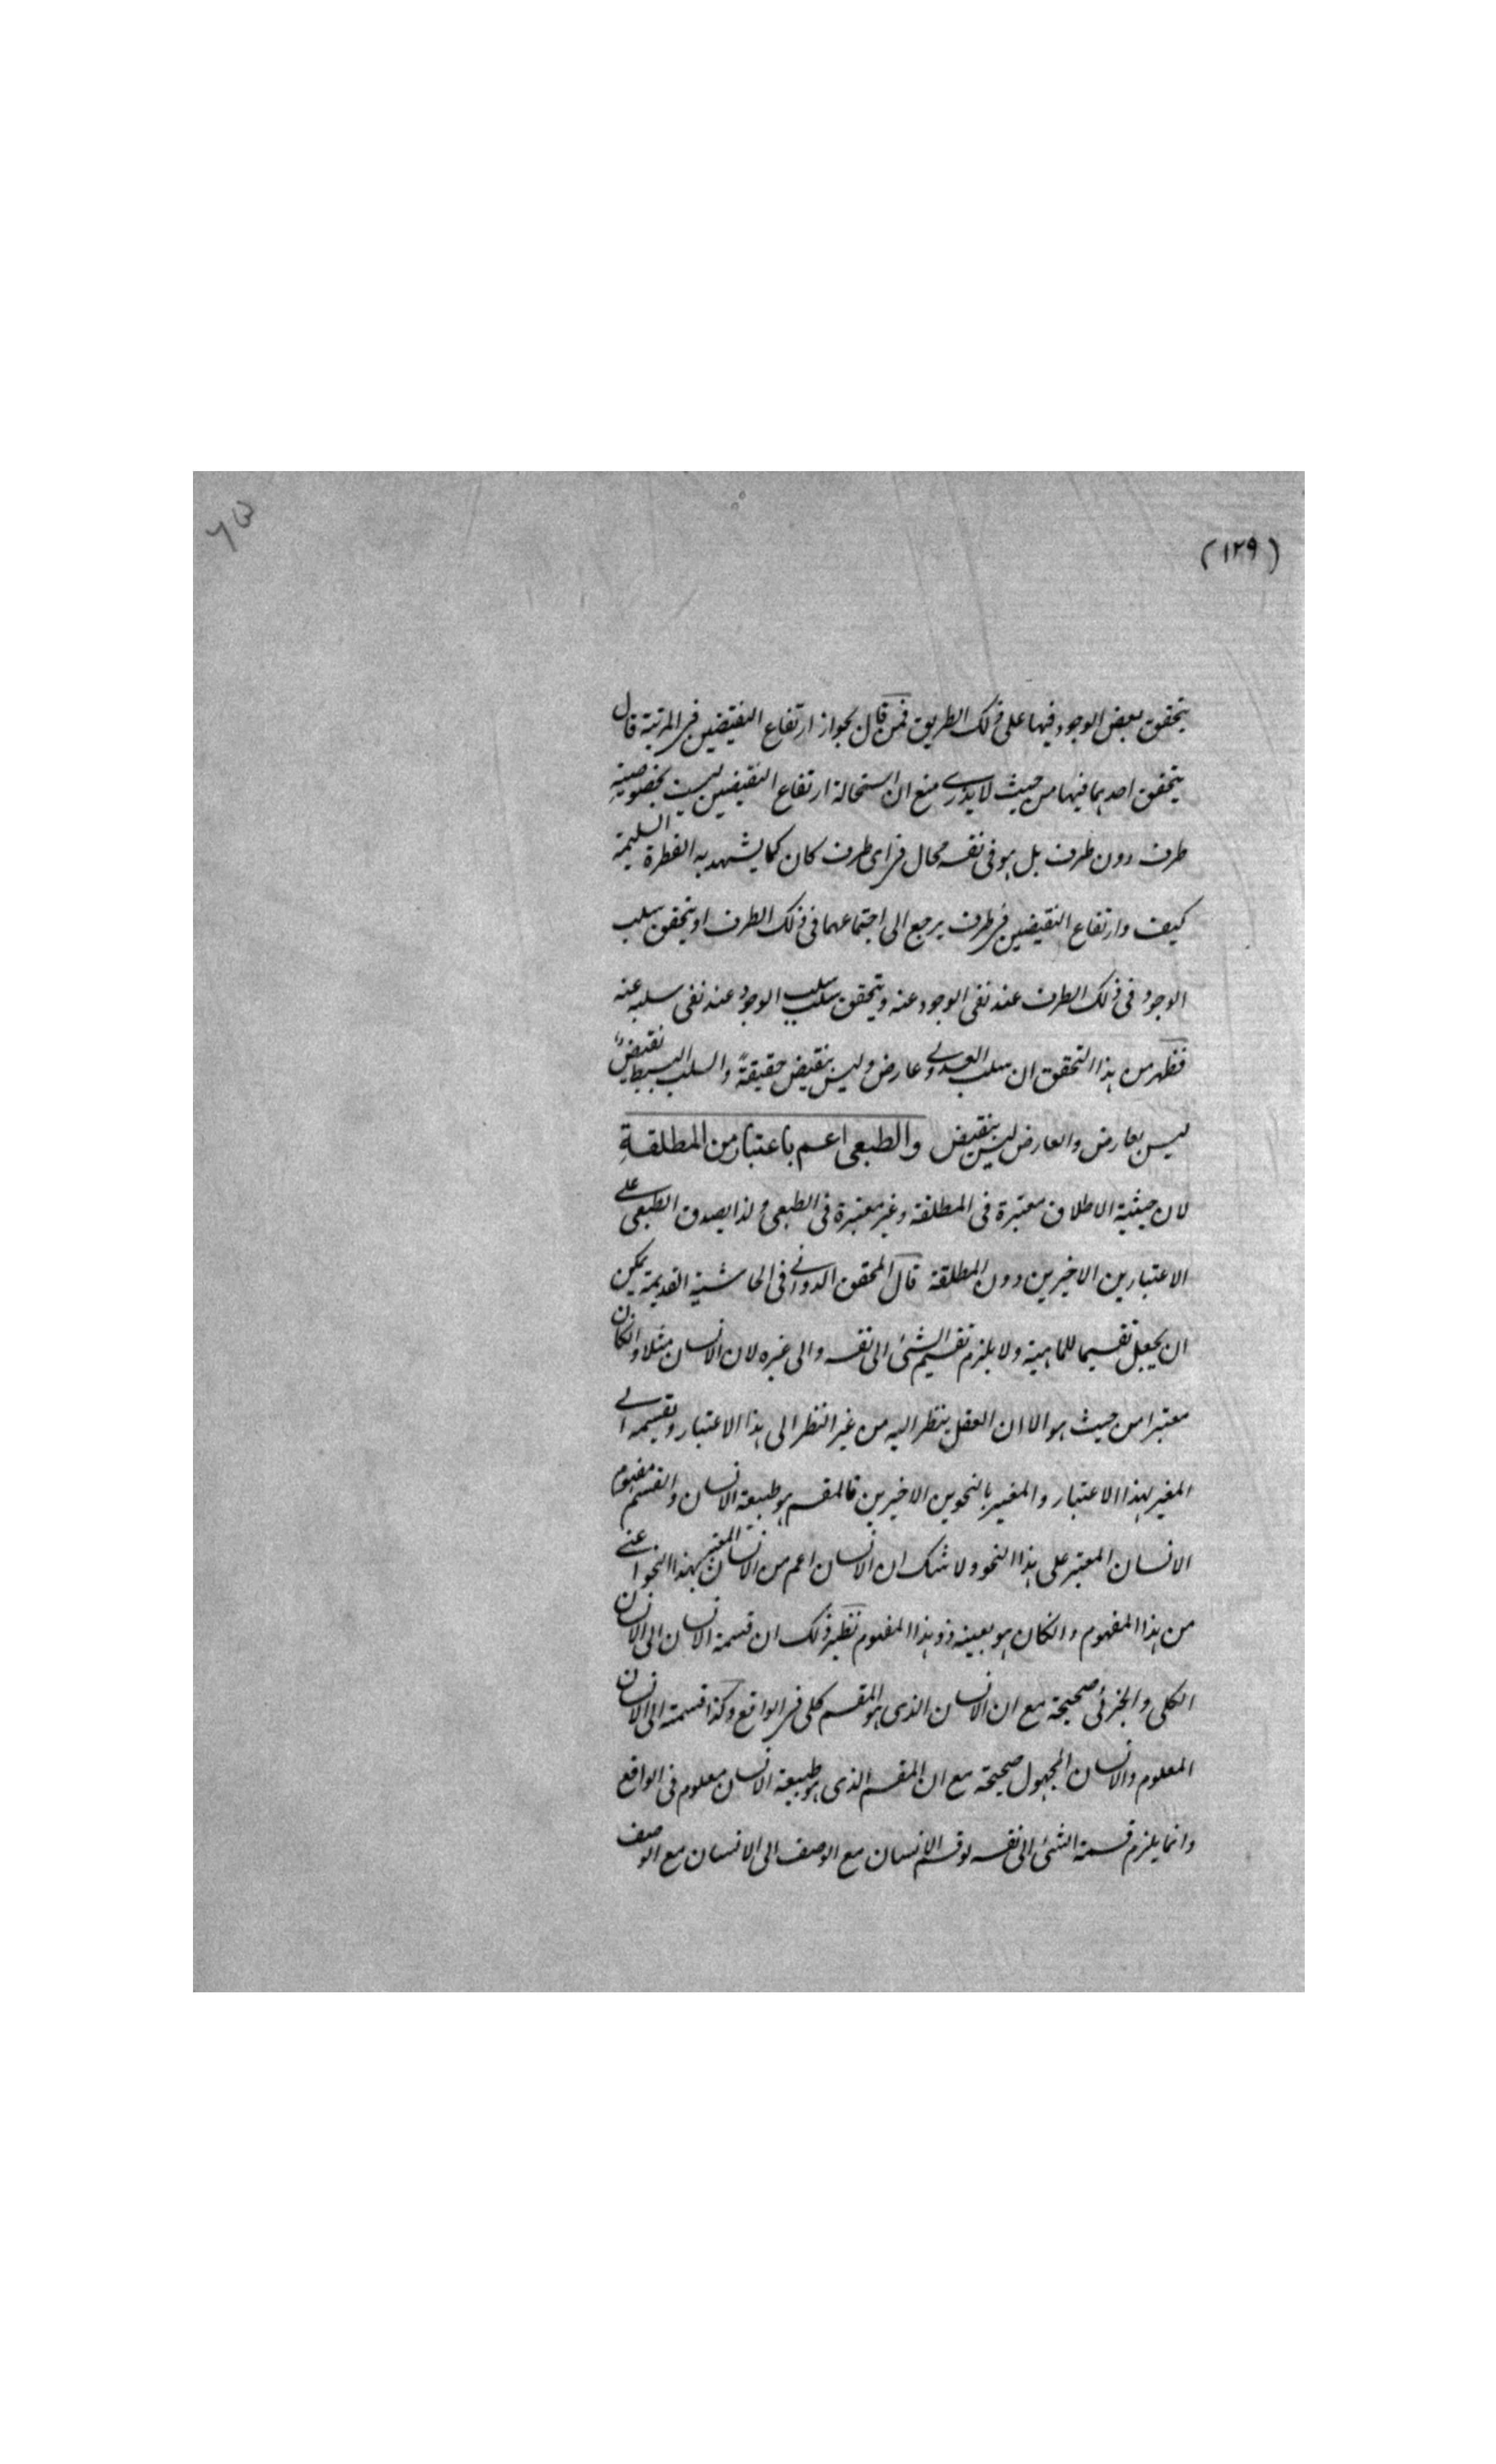 (١٢٩)
يتحقق بعض الوجود فيها على ذلك الطريق فمن قال بجواز ارتفاع النقيضين فى المرتبة قال
يتحقق احدهما فيها من حيث لا يدرى منع ان استحالة ارتفاع النقيضين ليست بخصوصية
ظرف دون ظرف بل هو فى نفسه محال فى اى ظرف كان كما يشهد به الفطرة السليمة
كيف وارتفاع النقيضين فى ظرف يرجع الى اجتماعهما فى ذلك الظرف اذ يتحقق سلب
الوجود فى ذلك الظرف عند نفى الوجود عنه ويتحقق سلب سلب الوجود عند نفى سلبه عنه
فظهر من هذا التحقق ان سلب العدولى عارض وليس بنقيض حقيقةً والسلب البسيط نقيضٌ
ليس بعارض والعارض ليس بنقيض والطبعى اعم باعتبار من المطلقةِ
لان حيثية الاطلاق معتبرة فى المطلقة وغير معتبرة فى الطبعى ولذا يصدق الطبعى على
الاعتبارين الاخيرين دون المطلقة قال المحقق الدوانى فى الحاشية القديمة يمكن
ان يجعل تقسيما للماهية ولا يلزم تقسيم الشئ الى نفسه والى غيره لان الانسان مثلا وانكان
معتبرا من حيث هو الا ان العقل ينظر اليه من غير النظر الى هذا الاعتبار ويقسمه الى
المغير بهذا الاعتبار والمغير بالنحوين الاخيرين فالمقسم هو طبيعة الانسان والقسم مفهوم
الانسان المعتبر على هذا النحو ولا شك ان الانسان اعم من الانسان المعتبر بهذا النحو اعنى
من هذا المفهوم وانكان هو بعينه ذو هذا المفهوم نظير ذلك ان قسمة الانسان الى الانسان
الكلى والجزئى صحيحة مع ان الانسان الذى هو المقسم كلى فى الواقع وكذا قسمته الى الانسان
المعلوم والانسان المجهول صحيحة مع ان المقسم الذى هو طبيعة الانسان معلوم فى الواقع
وانما يلزم قسمة الشئ الى نفسه لو قسم الانسان مع الوصف الى الانسان مع الوصف